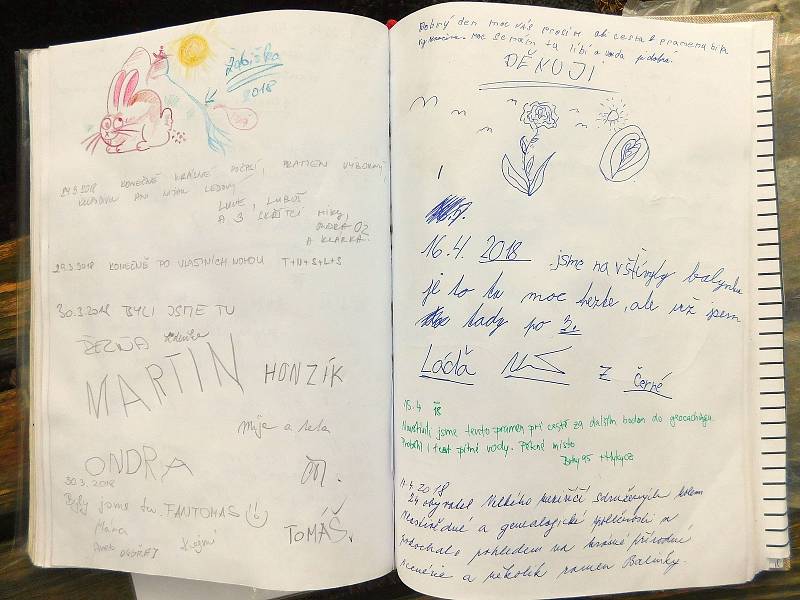 Žabiška
2018
24.3.2018 KONEČNĚ KRÁSNÉ POČASÍ, PRAMEN VÝBORNÝ,
ANI LEDOVÝ
LUCIE, LUBOŠ
A 3 SKŘÍTCI MIKY,
ONDRA OZ
A KLÁRKA.
29.3.2018 KONEČNĚ PO VLASTNÍCH NOHOU T+N+S+L+S
30.3.2018 BYLI JSME TU
MARTIN HONZÍK
Míja a
ONDRA M.
30.3.2018
Byly jsme tu. FANTOMAS
TOMÁŠ.
Dobrý den moc vás prosím ať cesta k prameni
moc se nám tu líbí a voda je dobrá.
DĚKUJI
16.4. 2018 jsme navštívyly balynku
je to tu moc hezke, ale už jsem
tady po 3.
Láďa z Černé
15.4 18
Navštívili jsme tevsto pramen při cestě za dalším bodem do geocachingu.
Proběhl i test pitné vody. Pěkné místo
11.4.2018
24 obyvatel Velkého Meziříčí sdružených kolem
a genealogické společnosti se
pokochalo pohledem na krásné přírodní
scenérie a několik ramen Balinky.